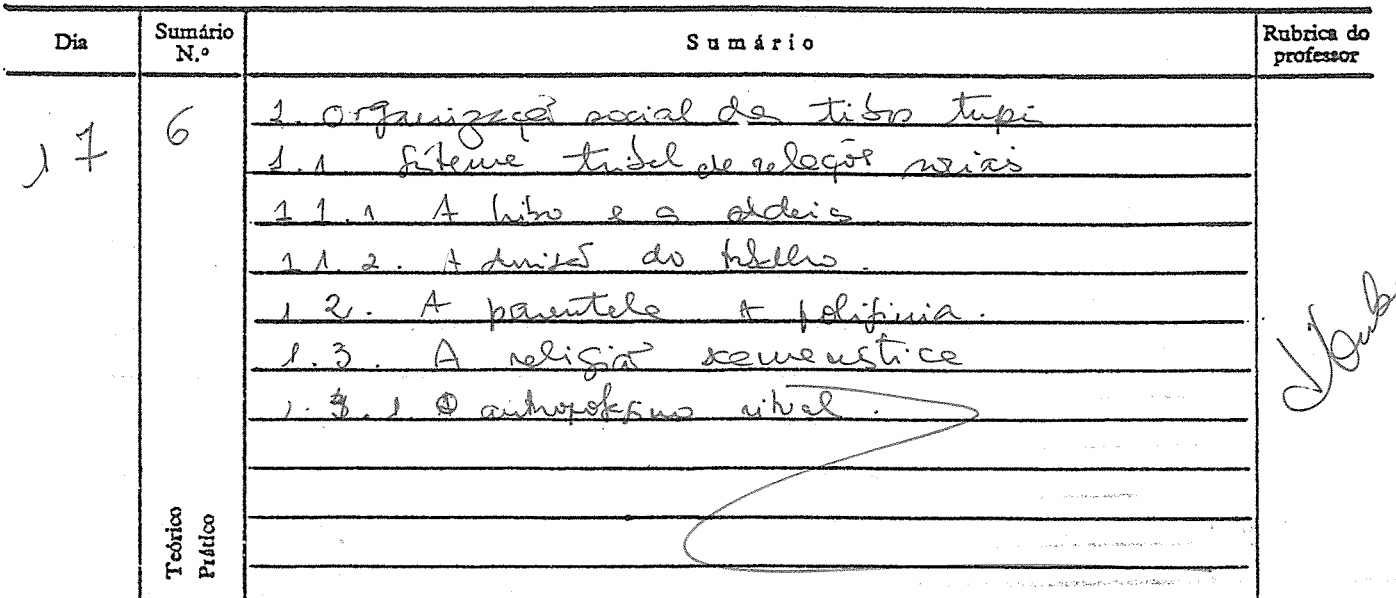 Dia Sumário N.º Sumário Rubrica do professor
17 6 1. Organização social das tribos tupi
1.1. Sistema tribal de relações sociais
1.1.1 A tribo e a aldeia
1.1.2. A divisão do trabalho.
1.2. A parentela A poliginia.
1.3. A religião xamanística
1.3.1 O antropofagismo ritual.
Teórico
Prático